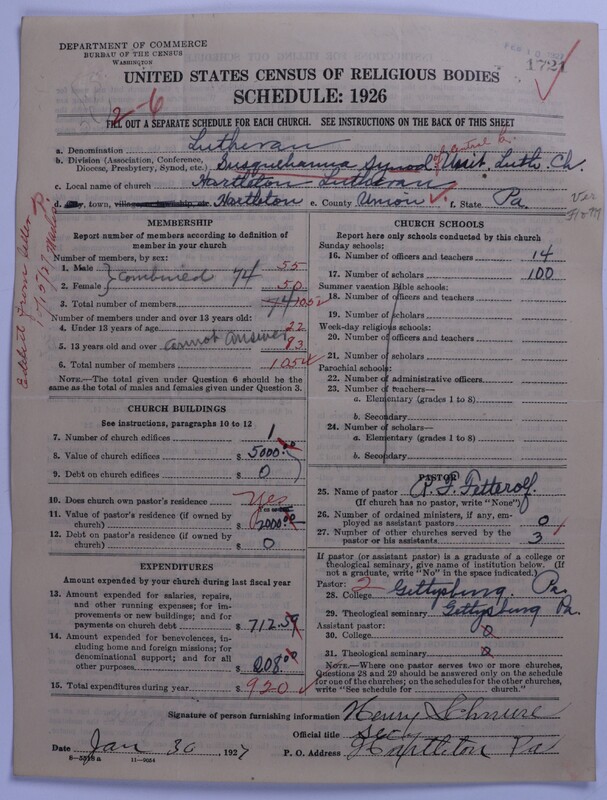 DEPARTMENT OF COMMERCE
BUREAU OF THE CENSUS
WASHINGTON
1721
UNITED STATES CENSUS OF RELIGIOUS BODIES
SCHEDULE: 1926
2-6
FILL OUT A SEPARATE SCHEDULE FOR EACH CHURCH. SEE INSTRUCTIONS ON THE BACK OF THIS SHEET
a. Denomination Lutheran
b. Division (Association, Conference, Diocese, Presbytery, Synod, etc.) Susquehanna Synod of Unit. Luth. Ch.
c. Local name of church Hartleton Lutheran
d. City, town, village, township, etc. Hartleton e. County Union f. State Pa.
MEMBERSHIP
Report number of members according to definition of
member in your church
Number of members, by sex:
1. Male 55
combined 74
2. Female 50
3. Total number of members 74 105
Number of members under and over 13 years old:
4. Under 13 years of age 22
5. 13 years old and over cannot answer 83
6. Total number of members 105
NOTE.—The total given under Question 6 should be
same as the total of males and females given under Question 3.
CHURCH BUILDINGS
See instructions, paragraphs 10 to 12
7. Number of church edifices 1
8. Value of church edifices $ 5000.00
9. Debt on church edifices $ 0
10. Does church own pastor's residence Yes
11. Value of pastor's residence (if owned by
church) $ 2000.00
12. Debt on pastor's residence (if owned by
church) $ 0
EXPENDITURES
Amount expended by your church during last fiscal year
13. Amount expended for salaries, repairs,
and other running expenses; for im-
provements or new buildings; and for
payments on church debt $ 712.59
14. Amount expended for benevolences,
including home and foreign missions; for
denominational support; and for all
other purposes $ 208.00
15. Total expenditures during year $ 920
CHURCH SCHOOLS
Report here only schools conducted by this church
Sunday schools:
16. Number of officers and teachers 14
17. Number of scholars 100
Summer vacation Bible schools:
18. Number of officers and teachers
19. Number of scholars
Week-day religious schools:
20. Number of officers and teachers
21. Number of scholars
Parochial schools:
22. Number of administrative officers
23. Number of teachers—
a. Elementary (grades 1 to 8)
b. Secondary
24. Number of scholars—
a. Elementary (grades 1 to 8)
b. Secondary
PASTOR
25. Name of pastor Fetterolf
(If church has no pastor, write "None")
26. Number of ordained ministers, if any, em-
ployed as assistant pastors 0
27. Number of other churches served by the
pastor or his assistants 3
If pastor (or assistant pastor) is a graduate of a college or
theological seminary, give name of institution below. (If
not a graduate, write "No" in the space indicated.)
Pastor:
28. College 2 Gettysburg. Pa
29. Theological seminary Gettysburg Pa.
Assistant pastor:
30. College 0
31. Theological seminary 0
NOTE.—Where one pastor serves two or more churches,
Questions 28 and 29 should be answered only on the schedule
for one of the churches; on the schedules for the other churches,
write "See schedule for church."
Signature of person furnishing information Henry
Official title
Date Jan 30, 1927 P. O. Address Hartleton Pa
8—5518a 11—9054